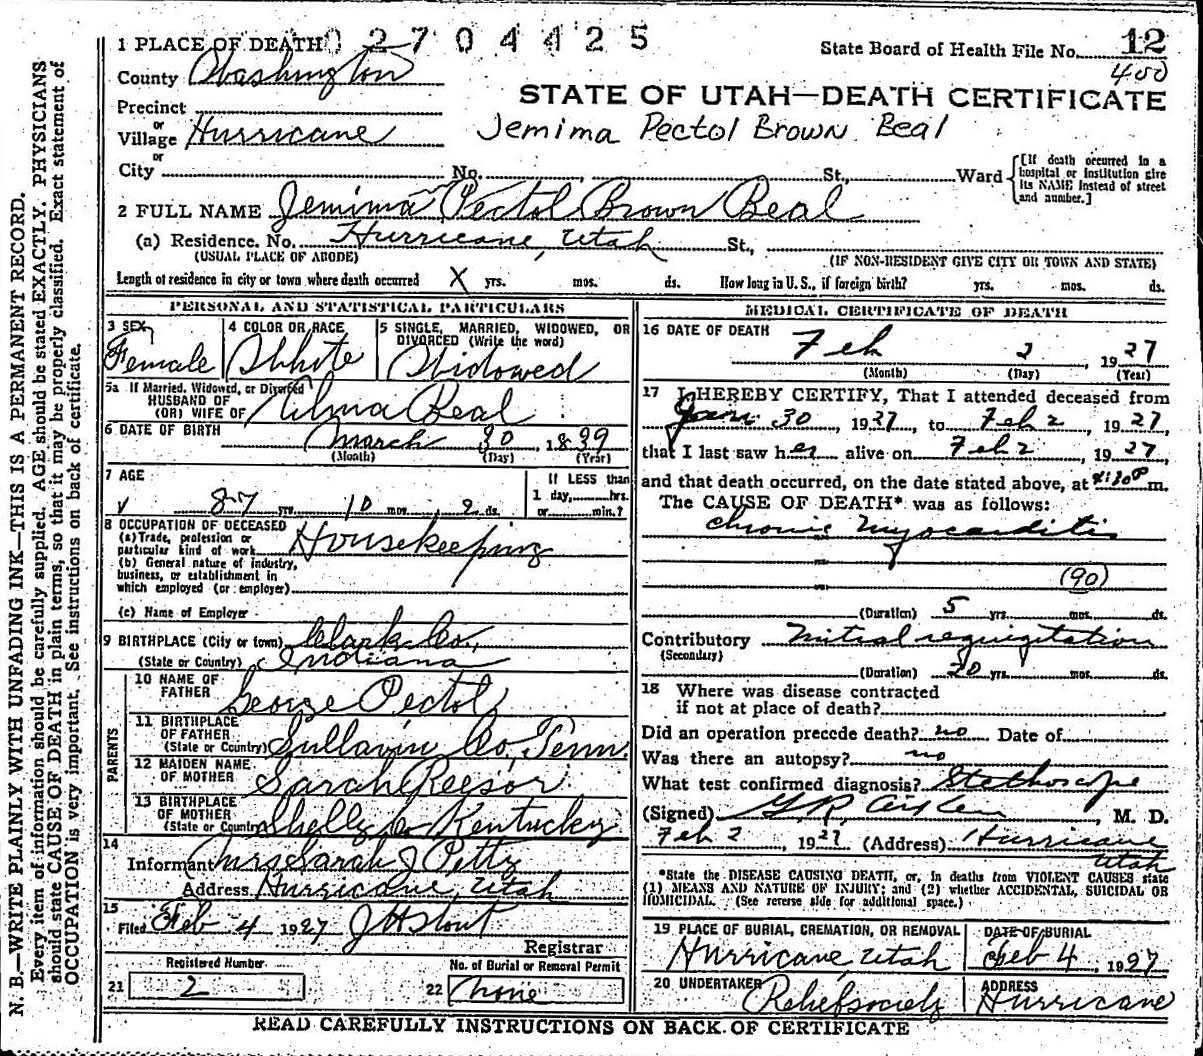 02704425
1 PLACE OF DEATH
State Board of Health File No. 12
400
County Washington
STATE OF UTAH—DEATH CERTIFICATE
Precinct
or
Village Hurricane
Jemima Pectol Brown Beal
or
City No. St., Ward
[If death occurred in a hospital or institution give its NAME instead of street and number.]
2 FULL NAME Jemima Pectol Brown Beal
(a) Residence. No. Hurricane, Utah St.,
(USUAL PLACE OF ABODE) (IF NON-RESIDENT GIVE CITY OR TOWN AND STATE)
Length of residence in city or town where death occurred X yrs. mos. ds. How long in U. S., if foreign birth? yrs. mos. ds.
PERSONAL AND STATISTICAL PARTICULARS
3 SEX 4 COLOR OR RACE 5 SINGLE, MARRIED, WIDOWED, OR DIVORCED (Write the word)
Female White Widowed
5a If Married, Widowed, or Divorced
HUSBAND OF
(OR) WIFE OF Beal
6 DATE OF BIRTH March 30 1839
(Month) (Day) (Year)
7 AGE If LESS than
1 day, hrs.
87 yrs. 10 mos. 2 ds. or min.?
8 OCCUPATION OF DECEASED
(a) Trade, profession or
particular kind of work Housekeeping
(b) General nature of industry,
business, or establishment in
which employed (or employer)
(c) Name of Employer
9 BIRTHPLACE (City or town) Clark Co,
(State or Country) Indiana
PARENTS
10 NAME OF
FATHER George Pectol
11 BIRTHPLACE
OF FATHER
(State or Country) Sullavin Co, Tenn.
12 MAIDEN NAME
OF MOTHER Sarah Reesor
13 BIRTHPLACE
OF MOTHER
(State or Country) Shelly Co Kentucky
14
Informant Mrs Sarah J Petty
Address Hurricane, Utah
15
Filed Feb 4 1927 J H Stout
Registrar
Registered Number No. of Burial or Removal Permit
21 2 22 None
MEDICAL CERTIFICATE OF DEATH
16 DATE OF DEATH
Feb 2 1927
(Month) (Day) (Year)
17 I HEREBY CERTIFY, That I attended deceased from
Jan 30, 1927, to Feb 2, 1927,
that I last saw her alive on Feb 2, 1927,
and that death occurred, on the date stated above, at 4:30P m.
The CAUSE OF DEATH* was as follows:
Chronic Myocarditis
(90)
(Duration) 5 yrs. mos. ds.
Contributory Mitral regurgitation
(Secondary)
(Duration) 20 yrs. mos. ds.
18 Where was disease contracted
if not at place of death?
Did an operation precede death? no Date of
Was there an autopsy? no
What test confirmed diagnosis? Stethoscope
(Signed) M. D.
Feb 2, 1927 (Address) Hurricane
Utah
*State the DISEASE CAUSING DEATH, or, in deaths from VIOLENT CAUSES state
(1) MEANS AND NATURE OF INJURY; and (2) whether ACCIDENTAL, SUICIDAL OR
HOMICIDAL. (See reverse side for additional space.)
19 PLACE OF BURIAL, CREMATION, OR REMOVAL DATE OF BURIAL
Hurricane, Utah Feb 4, 1927
20 UNDERTAKER ADDRESS
Relief society Hurricane
READ CAREFULLY INSTRUCTIONS ON BACK OF CERTIFICATE
N. B.—WRITE PLAINLY WITH UNFADING INK—THIS IS A PERMANENT RECORD.
Every item of information should be carefully supplied. AGE should be stated EXACTLY. PHYSICIANS
should state CAUSE OF DEATH in plain terms, so that it may be properly classified. Exact statement of
OCCUPATION is very important. See instructions on back of certificate.